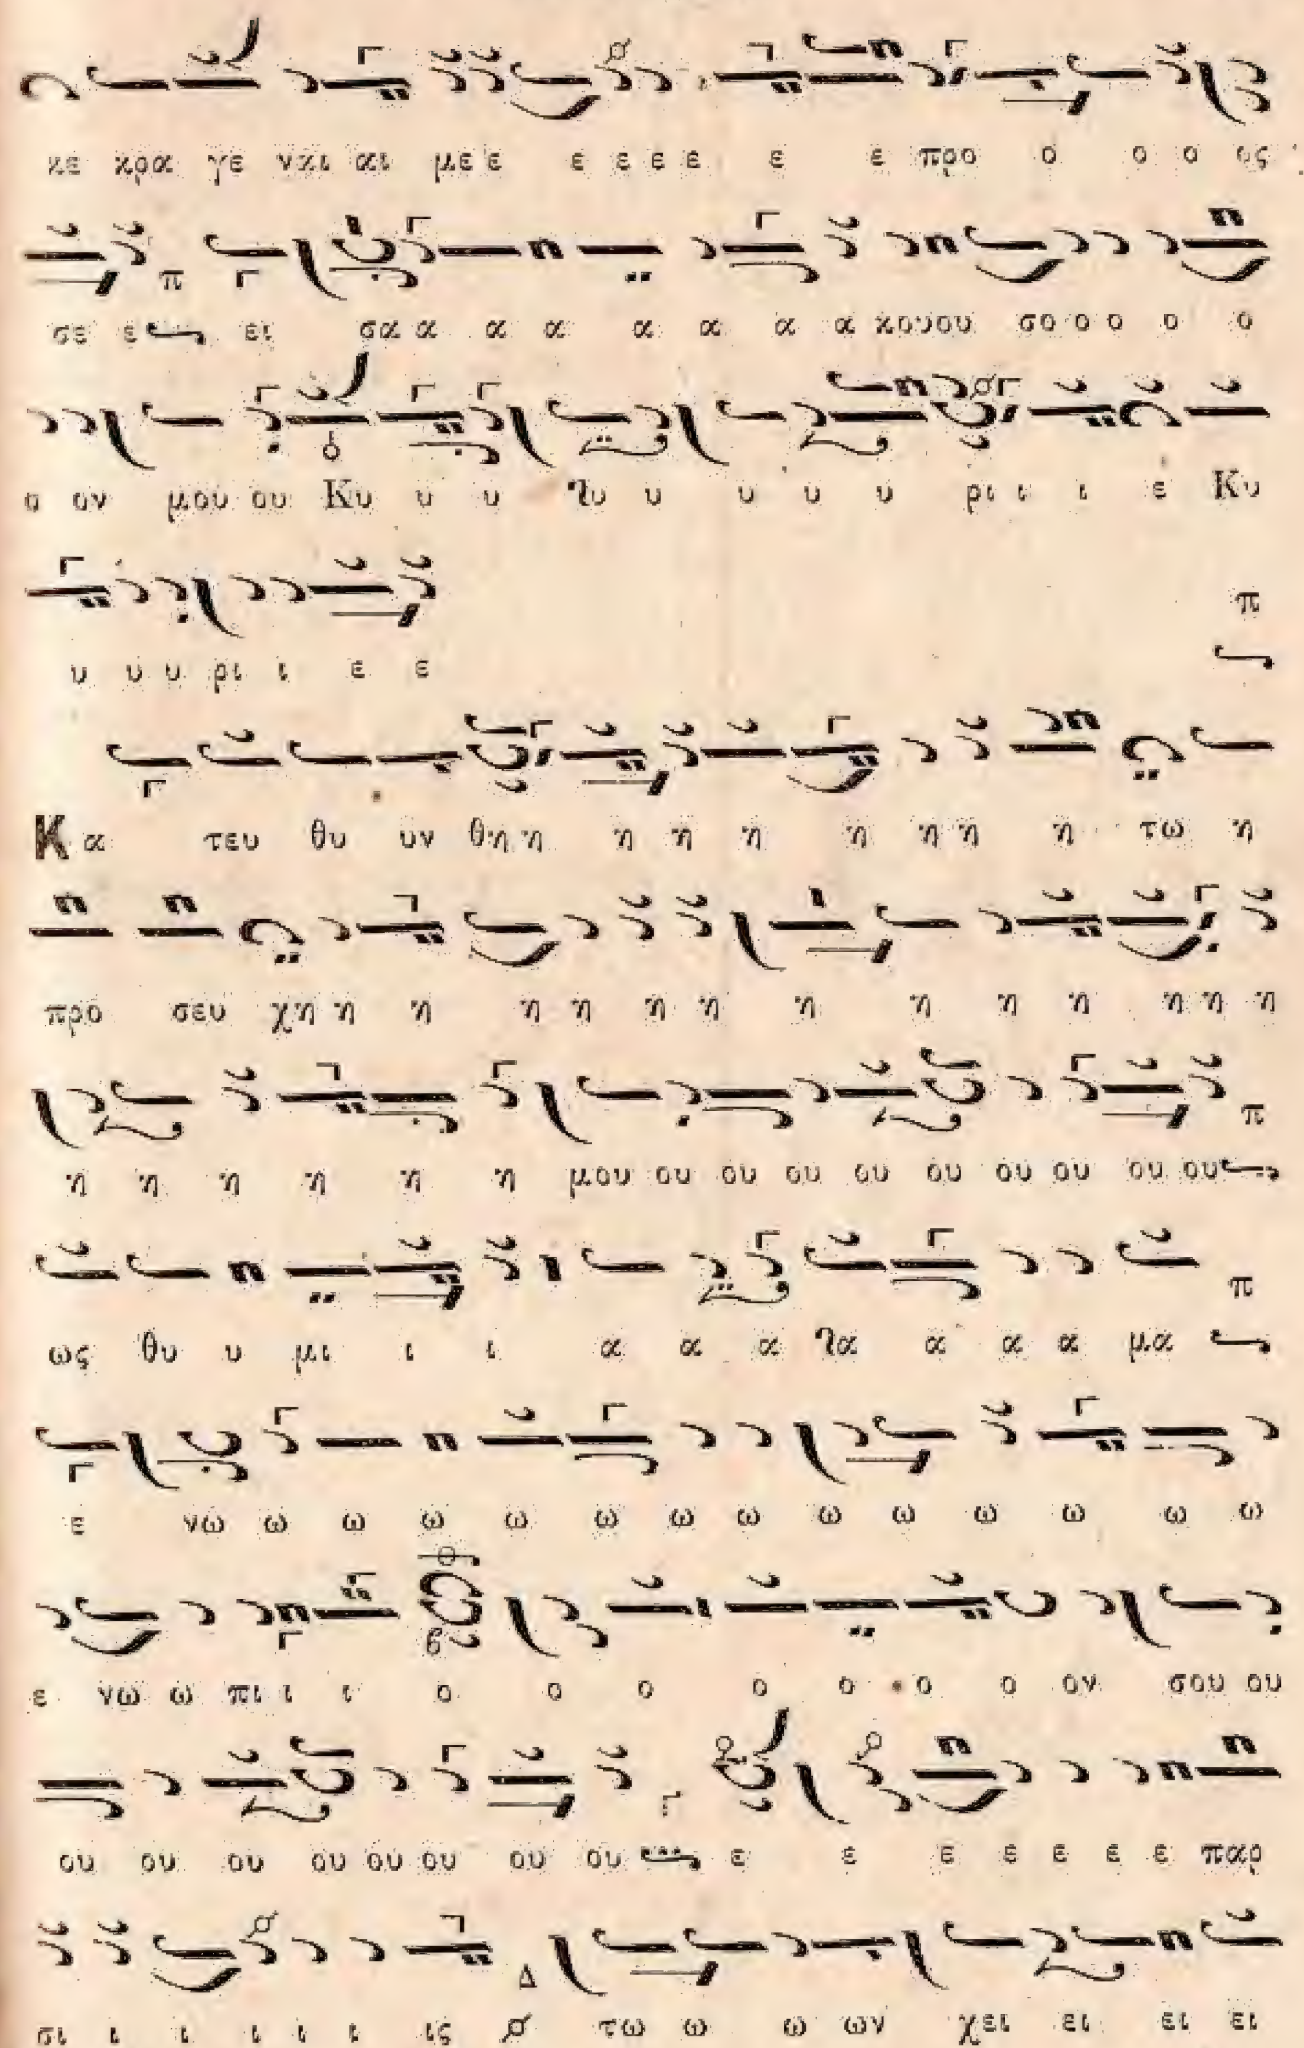 κε κρα γε ναι αι με ε ε ε ε ε ε ε προ ο ο ο ος
σε ε ει σα α α α α α α α κουου σο ο ο ο ο
ο ον μου ου Κυ υ υ υ υ υ υ ρι ι ι ε Κυ
υ υ υ ρι ι ε ε
π
Κα τευ θυ υν θη η η η η η η η η τω η
προ σευ χη η η η η η η η η η η η η η
η η η η η η μου ου ου ου ου ου ου ου ου ου
π
ως θυ υ μι ι ι α α α α α α α μα
π
ε νω ω ω ω ω ω ω ω ω ω ω ω ω ω
ε νω ω πι ι ι ο ο ο ο ο ο ο ον σου ου
ου ου ου ου ου ου ου ου ε ε ε ε ε ε ε παρ
σι ι ι ι ι ι ις τω ω ω ων χει ει ει ει